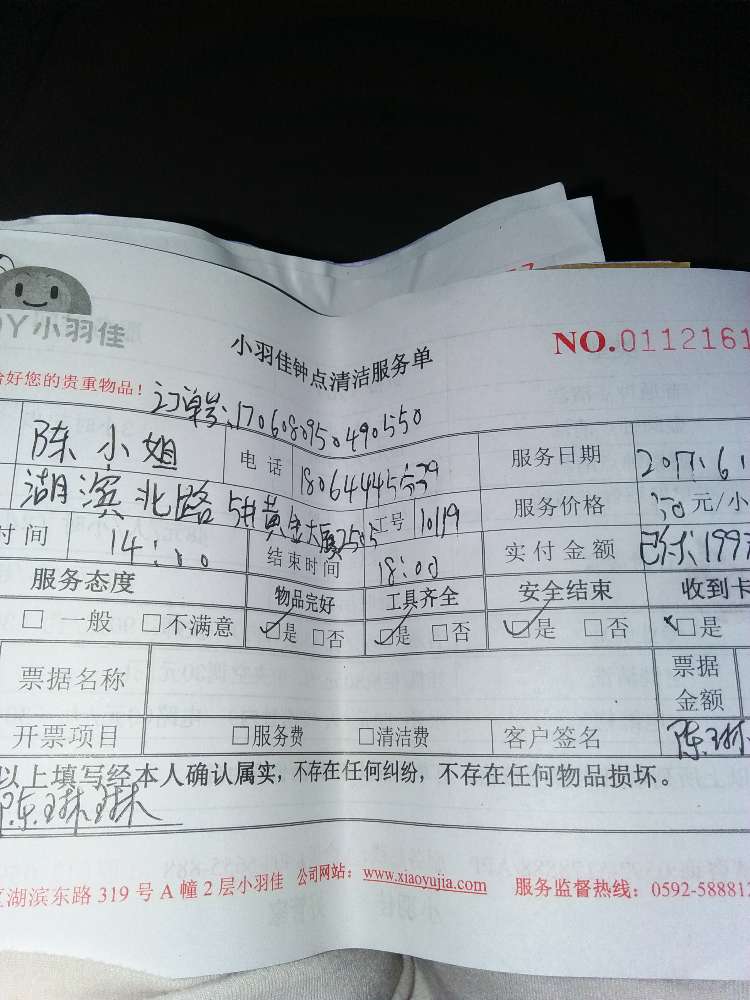 小羽佳
小羽佳钟点清洁服务单
NO.0112161
好您的贵重物品!
订单号:1706080950490550
陈小姐 电话 服务日期 2017.6.
湖滨北路 黄金大厦2505 工号 10119 服务价格 元/小
时间 14:00 结束时间 18:00 实付金额 已付:199
服务态度 物品完好 工具齐全 安全结束 收到卡
□一般 □不满意 □是 □否 □是 □否 □是 □否 □是
票据名称 票据金额
开票项目 □服务费 □清洁费 客户签名 陈琳
以上填写经本人确认属实,不存在任何纠纷,不存在任何物品损坏。
陈琳琳
湖滨东路319号A幢2层小羽佳 公司网站:www.xiaoyujia.com 服务监督热线:0592-588812